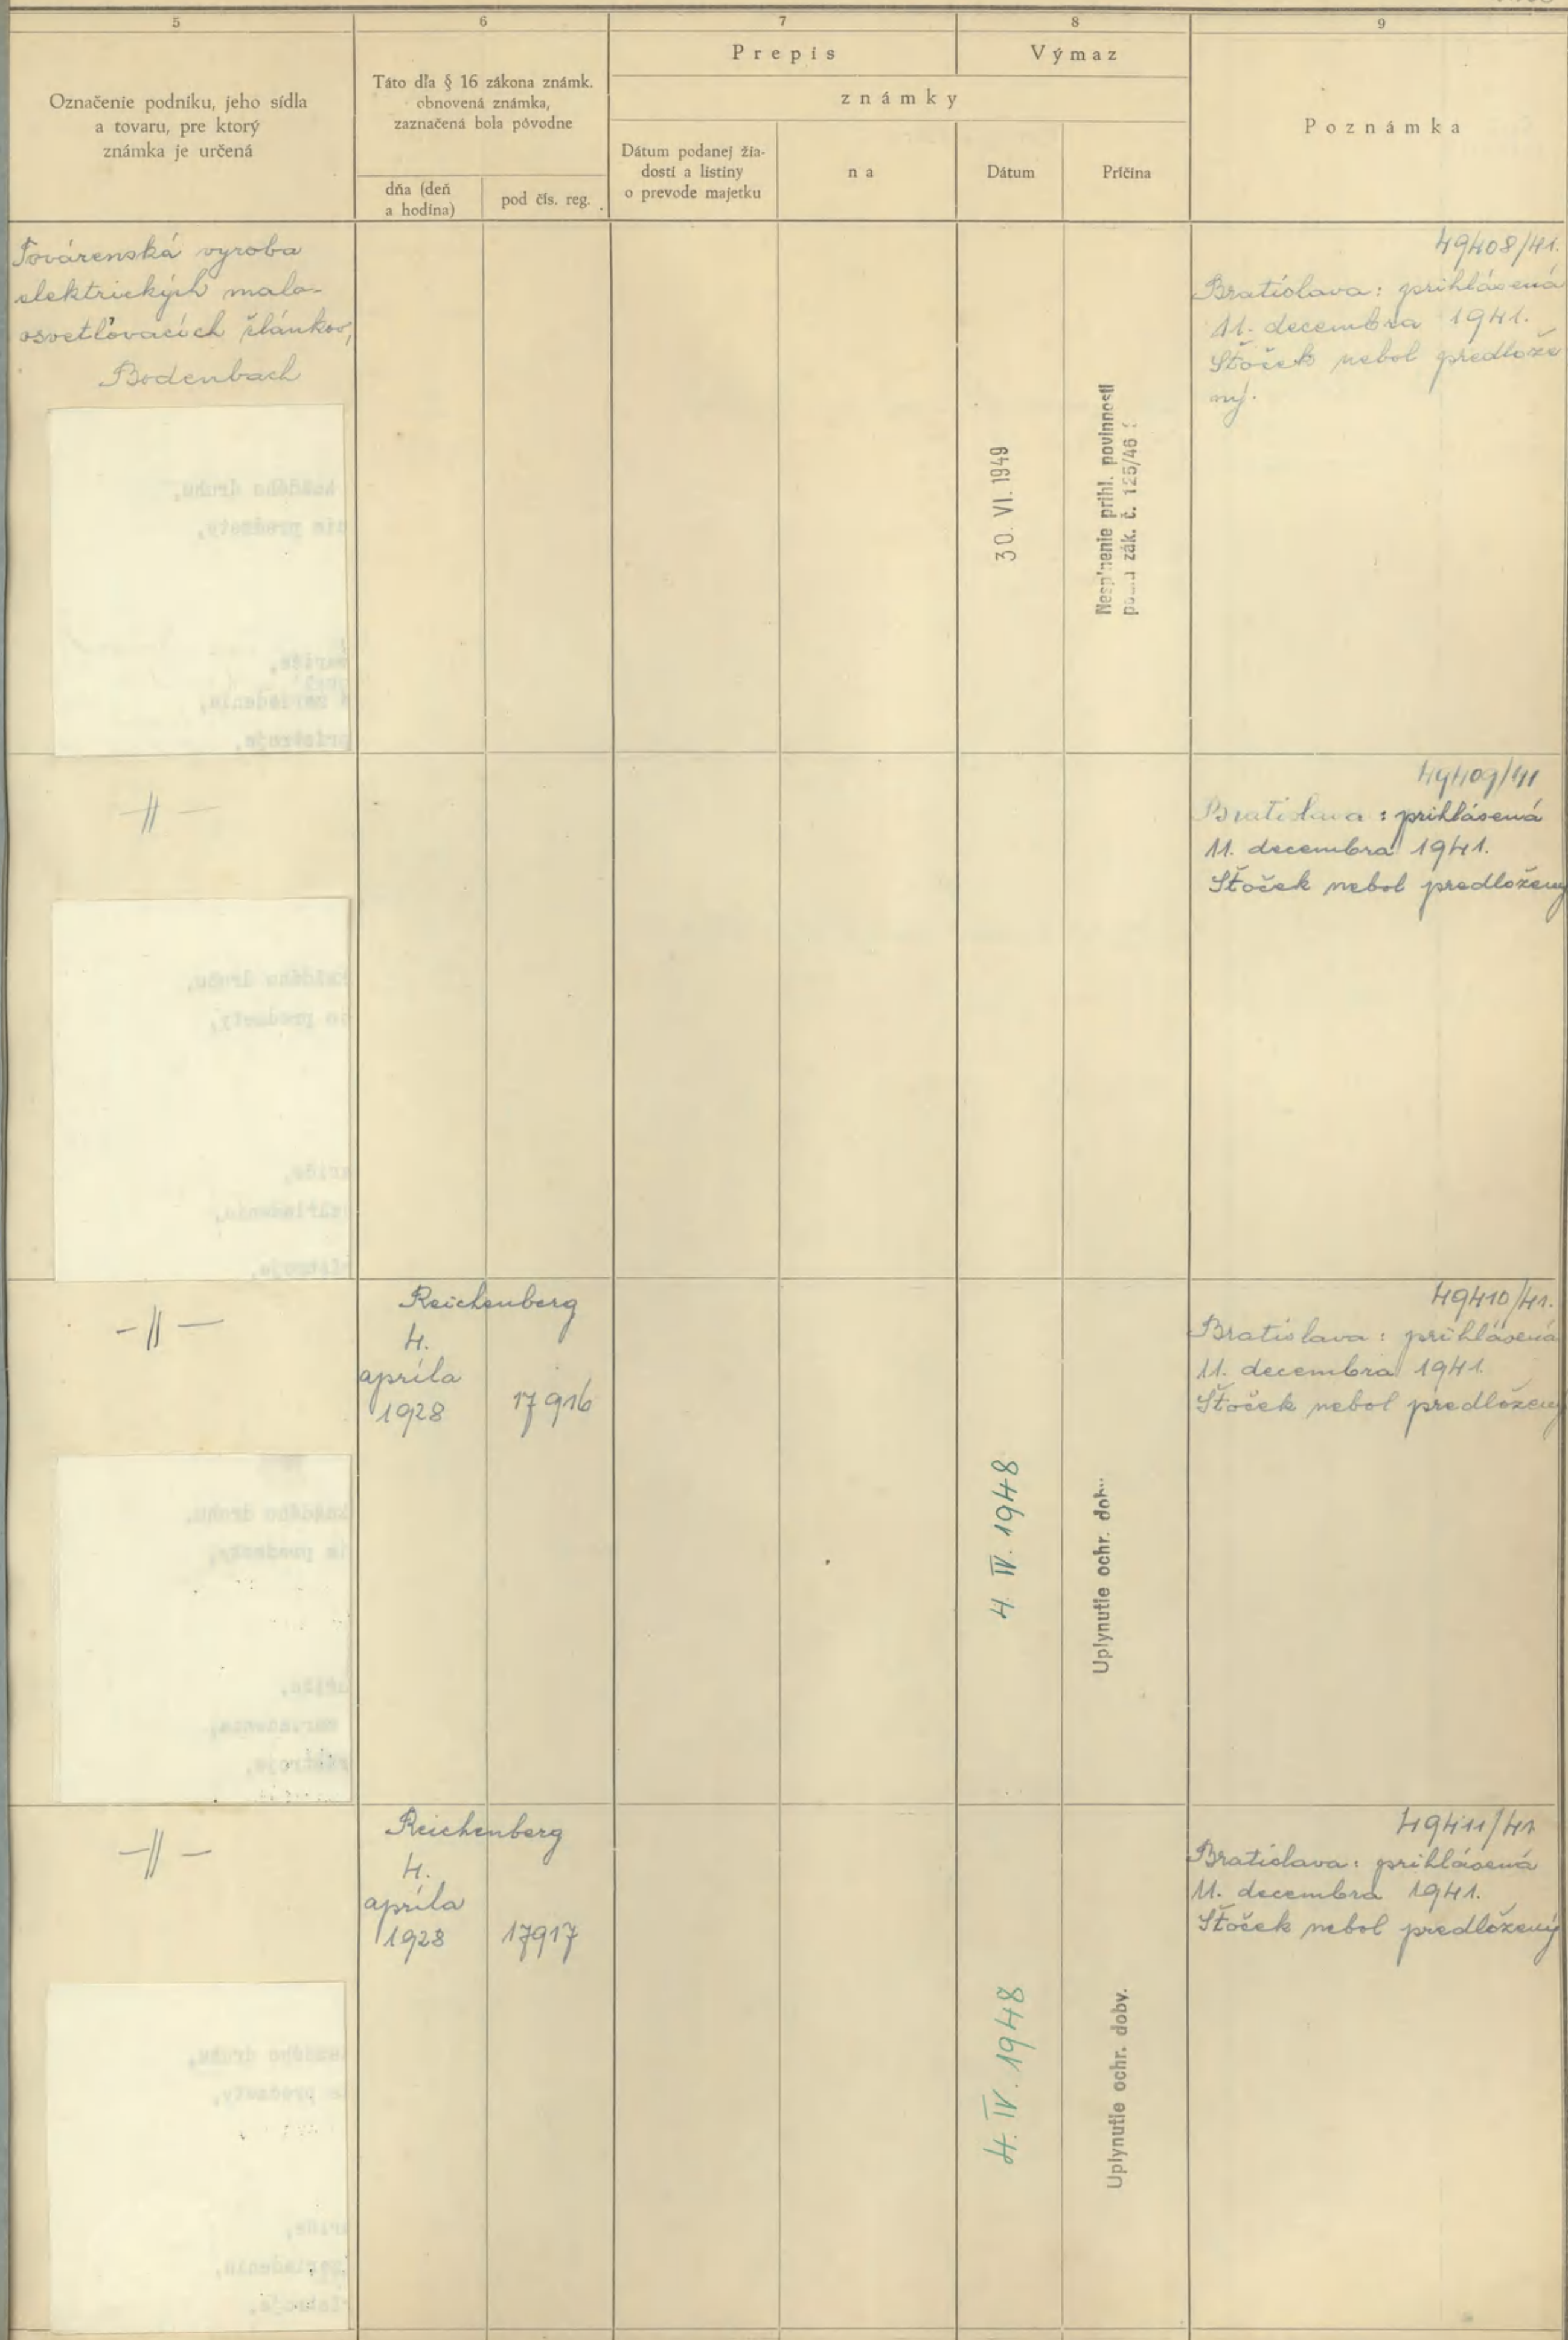 5
6
7
8
9
Označenie podniku, jeho sídla
a tovaru, pre ktorý
známka je určená
Táto dľa § 16 zákona známk.
obnovená známka,
zaznačená bola pôvodne
dňa (deň
a hodina)
pod čís. reg.
Prepis
Výmaz
známky
Dátum podanej žia-
dosti a listiny
o prevode majetku
na
Dátum
Príčina
Poznámka
Továrenská vyroba
elektrických malo-
osvetľovacích článkov,
Bodenbach
30. VI. 1949
prihl. povinnosti
zák. č. 125/46
49408/41.
Bratislava: prihlásená
11. decembra 1941.
Štoček nebol predlože
ný.
-||-
49409/41
Bratislava: prihlásená
11. decembra 1941.
Štoček nebol predložený
-||-
Reichenberg
4.
apríla
1928
17916
4. IV. 1948
Uplynutie ochr.
49410/41.
Bratislava: prihlásená
11. decembra 1941.
Štoček nebol predložený
-||-
Reichenberg
4.
apríla
1928
17917
4. IV. 1948
Uplynutie ochr. doby.
49411/41
Bratislava: prihlásená
11. decembra 1941.
Štoček nebol predložený